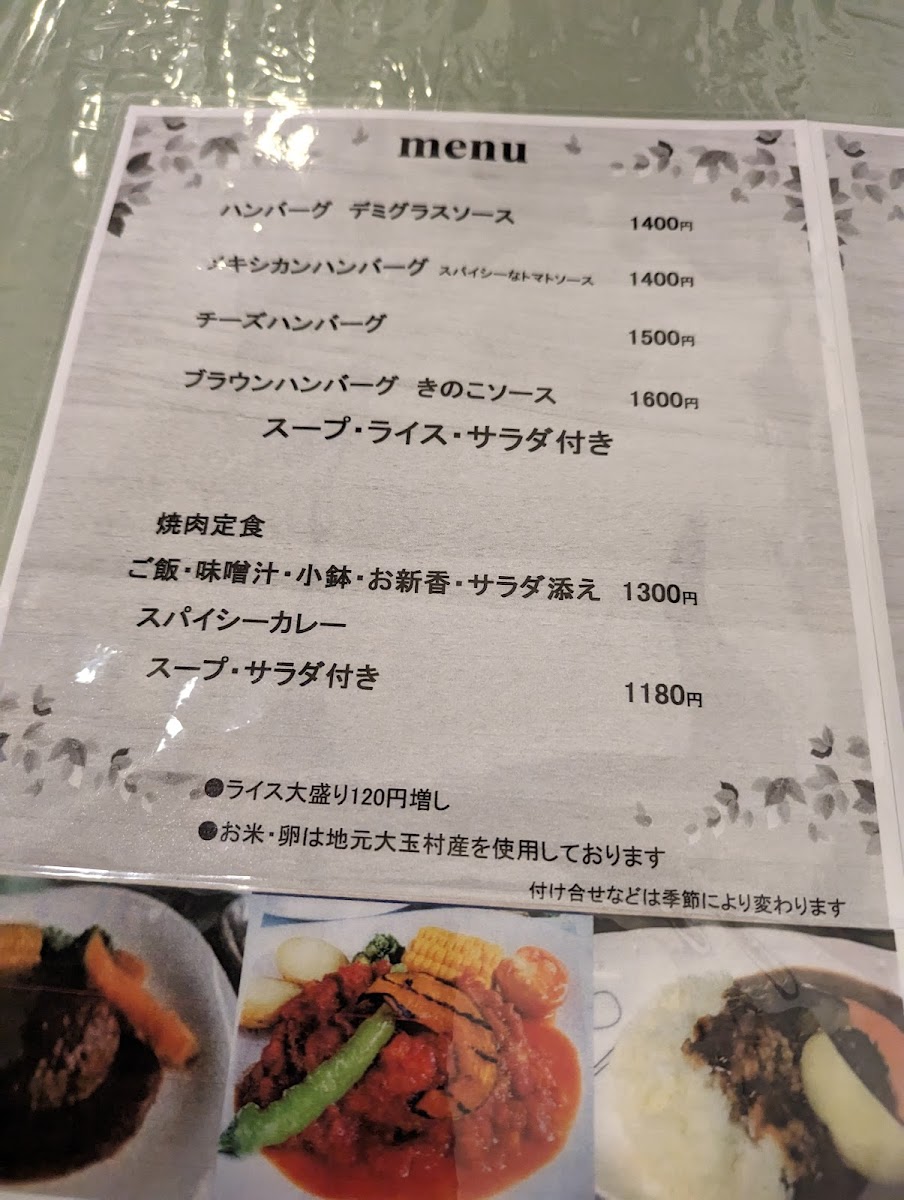 menu
ハンバーグ デミグラスソース 1400円
メキシカンハンバーグ スパイシーなトマトソース 1400円
チーズハンバーグ 1500円
ブラウンハンバーグ きのこソース 1600円
スープ・ライス・サラダ付き
焼肉定食
ご飯・味噌汁・小鉢・お新香・サラダ添え 1300円
スパイシーカレー
スープ・サラダ付き 1180円
●ライス大盛り120円増し
●お米・卵は地元大玉村産を使用しております
付け合せなどは季節により変わります